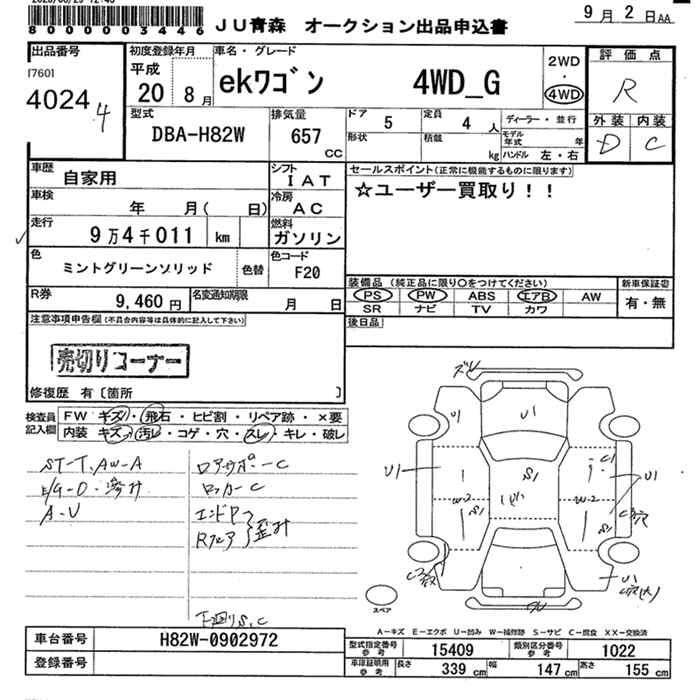 80000003446
JU青森 オークション出品申込書
9月2日AA
出品番号
17601
4024 4
初度登録年月
平成
20 8月
車名・グレード
ekワゴン 4WD_G
2WD
・
4WD
評価点
R
外装 内装
D C
型式
DBA-H82W
排気量
657
CC
ドア 5
定員 4 人
形状
積載 kg
ディーラー・並行
モデル年式 年
ハンドル 左・右
車歴
自家用
シフト
IAT
車検
年 月( 日)
冷房
AC
走行
9万4千011 km
燃料
ガソリン
色
ミントグリーンソリッド
色替
色コード
F20
R券
9,460円
名変通知期限
月 日
セールスポイント(正常に機能するものに限ります)
☆ユーザー買取り!!
装備品 (純正品に限り○をつけてください)
PS PW ABS エアB AW
SR ナビ TV カワ
新車保証書
有・無
後日品
注意事項申告欄(不具合内容等は具体的に記入して下さい)
売切りコーナー
修復歴 有〔箇所 〕
検査員記入欄
FW キズ・飛石・ヒビ割・リペア跡・×要
内装 キズ・汚レ・コゲ・穴・スレ・キレ・破レ
ST-T, AW-A
A-U
ロッカーC
エンドP
Rフロア 歪み
下回りS,C
U1
U1
U1
S1
W-2
W-2
S1
C1
U1
U1
スペア
A-キズ E-エクボ U-凹み W-補修跡 S-サビ C-腐食 XX-交換済
車台番号
H82W-0902972
登録番号
型式指定番号
参考
15409
類別区分番号
参考
1022
車検証明用
参考
長さ 339 cm
幅 147 cm
高さ 155 cm